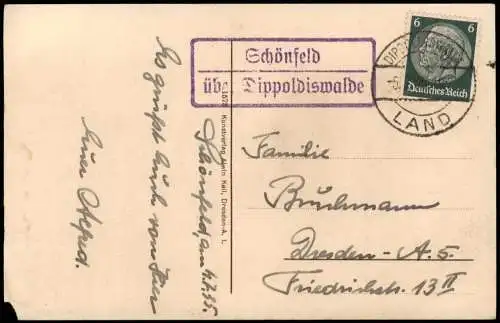 Schönfeld
über Dippoldiswalde
6 6
Deutsches Reich
LAND
Kunstverlag Alwin Keil, Dresden-A. 1.
Schönfeld, am 4.7.35.
Es grüßt Euch von hier
Euer Alfred.
Familie
Bruchmann
Dresden-A. 5.
Friedrichstr. 13 II